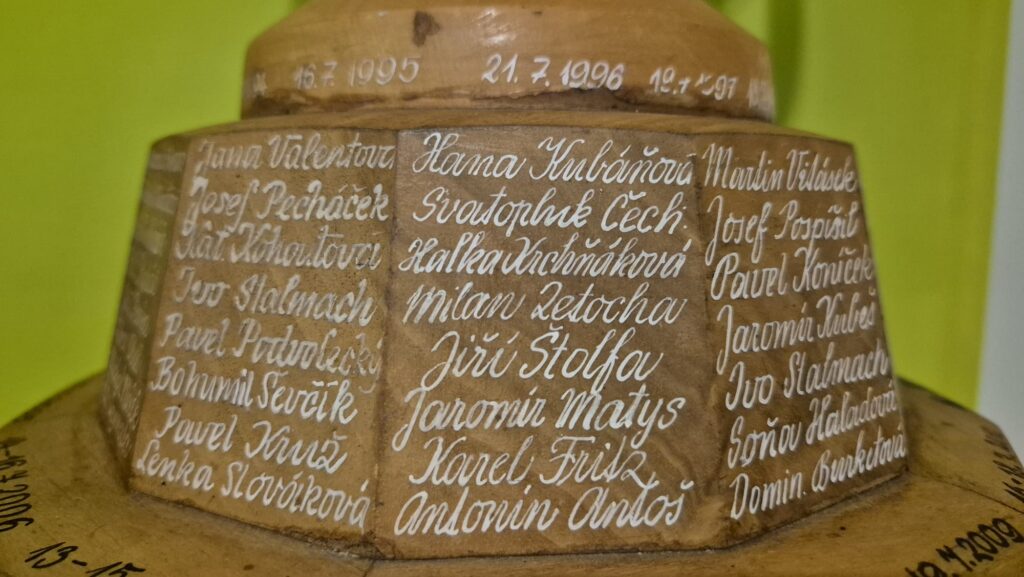 16.7.1995
21.7.1996
Jana Valentová
Josef Pecháček
Kát. Kohoutová
Ivo Stalmach
Pavel Podvolecký
Bohumil Ševčík
Pavel Kruž
Lenka Slováková
Hana Kubáňová
Svatopluk Čech.
Halka Krchňáková
Milan Zetocha
Jiří Štolfa
Jaromír Matys
Karel Fritz
Antonín Antoš
Martin Vitásek
Josef Pospíšil
Pavel Koníček
Jaromír Kubeš
Ivo Stalmach
Soňa Haladová
Domin. Burketová
13-15
.7.2009